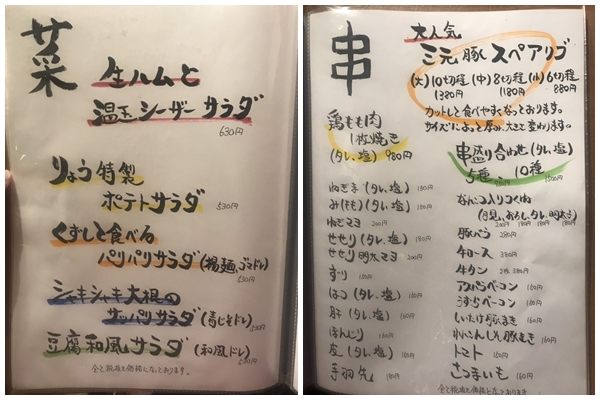 菜
生ハムと
温玉シーザーサラダ
630円
りょう特製
ポテトサラダ 530円
くずして食べる
パリパリサラダ(揚麺、ゴマドレ)
530円
シャキシャキ大根の
サッパリサラダ(青じそドレ)
豆腐和風サラダ(和風ドレ)
全て税抜き価格となっております。
串
大人気
三元豚スペアリブ
(大)10切程 (中)8切程 (小)6切程
1380円 1180円 880円
カットして食べやすくなっております。
サイズによって厚み、大きさ変わります。
鶏もも肉
1枚焼き
(タレ、塩) 980円
ねぎま(タレ、塩) 160円
み(もも)(タレ、塩) 160円
ねぎマヨ 200円
せせり(タレ、塩) 160円
せせり明太マヨ 200円
ずり 160円
はつ(タレ、塩) 160円
肝(タレ、塩) 160円
ぼんじり 160円
皮(タレ、塩) 160円
手羽先 180円
串盛り合わせ(タレ、塩)
5種 10種
1500円
なんこつ入りつくね
(月見、おろし、タレ、明太子)
200円 180円 180円 180円
豚バン 280円
牛ロース 380円
牛タン 2本 380円
アスパラベーコン 160円
うずらベーコン 160円
しいたけ豚まき 160円
れいこんしそ豚まき 160円
トマト 160円
さつまいも 160円
全て税抜き価格となっております